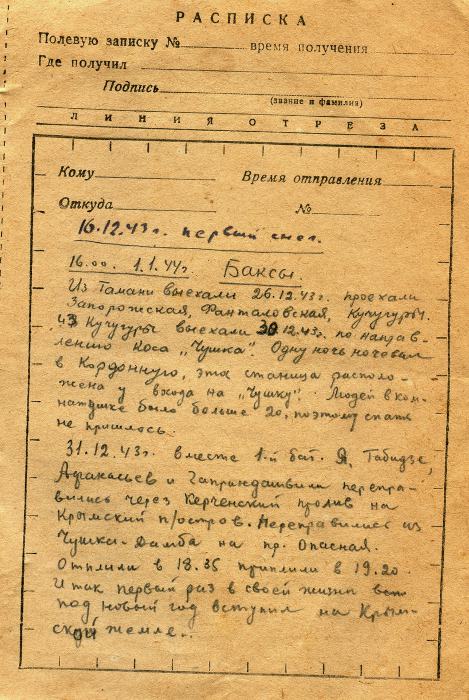 РАСПИСКА
Полевую записку № время получения
Где получил
Подпись
(звание и фамилия)
ЛИНИЯ ОТРЕЗА
Кому Время отправления
Откуда №
16.12.43г. первый снег.
16.00. 1.1.44г. Баксы.
Из Тамани выехали 26.12.43г. проехали
Запорожская, Фанталовская, Кучугуры.
из Кучугуры выехали 30.12.43г. по направ-
лению коса „Чушка". Одну ночь ночевал
в Кордонную, эта станица располо-
жена у входа на „Чушку". Людей в ком-
натушке было больше 20, поэтому спать
не пришлось.
31.12.43г. вместе 1-й бат. Я, Табидзе,
и перепра-
вились через Керченский пролив на
Крымский п/остров. Переправились из
Чушка-Дамба на пр. Опасная.
Отплыли в 18.35 приплыли в 19.20.
Итак первый раз в своей жизни
под новый год вступил на Крым-
ской земле..